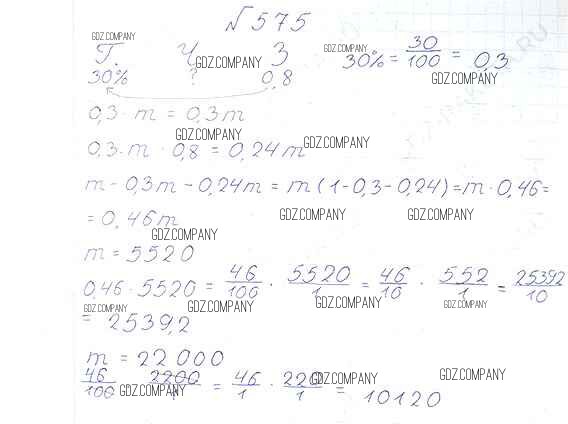 №575
GDZ.COMPANY GDZ.COMPANY
Г. Ч GDZ.COMPANY З 30% = 30/100 = 0,3
30% ? 0,8 GDZ.COMPANY
0,3 · m = 0,3m
GDZ.COMPANY GDZ.COMPANY
0,3 · m · 0,8 = 0,24m
m - 0,3m - 0,24m = m (1-0,3-0,24) = m · 0,46 =
= 0,46m GDZ.COMPANY GDZ.COMPANY
GDZ.COMPANY
m = 5520
0,46 · 5520 = 46/100 · 5520/1 = 46/10 · 552/1 = 25392/10
GDZ.COMPANY GDZ.COMPANY GDZ.COMPANY GDZ.COMPANY
= 2539,2
m = 22 000
46/100 2200/1 = 46/1 · 220/1 = 10120
GDZ.COMPANY GDZ.COMPANY GDZ.COMPANY